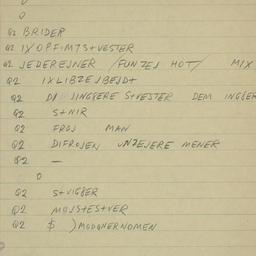 0
Q2 BRIDER
Q2 IX OPFIMTS+VESTER
Q2 JEDEREJNER /FUNZEJ HOT/ MIX
Q2 IXLIBZEJBEJD+
Q2 DI JINGERE S+VESTER DEM INGBER
Q2 S+NIR
Q2 FROJ MAN
Q2 DIFROJEN UNZEJERE MENER
Q2 —
0
Q2 S+VIGBER
Q2 MOJS+ES+VER
Q2 $ )MODQNERNOMEN